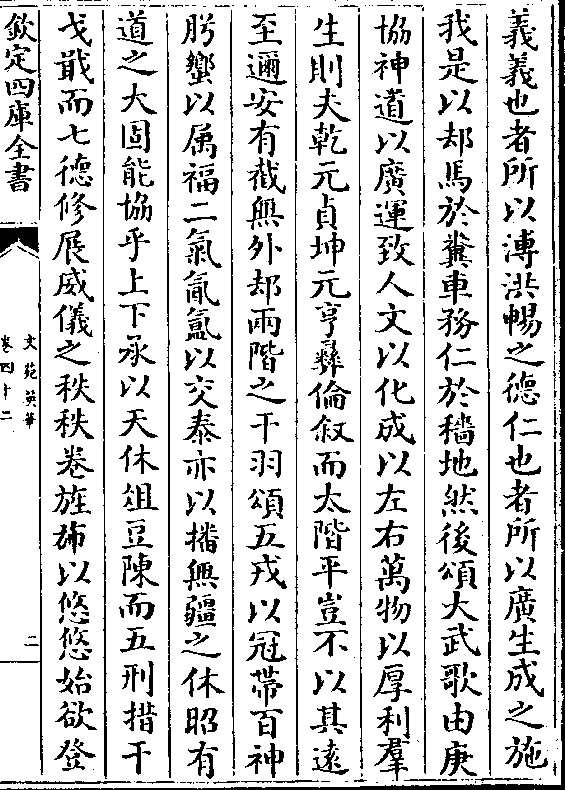 義義也者所以溥洪暢之德仁也者所以廣生成之施
我是以却馬於糞車務仁於穡地然後頌大武歌由庚
協神道以廣運致人文以化成以左右萬物以厚利羣
生則夫乾元貞坤元亨彞倫叙而太階平豈不以其遠
至邇安有截無外却兩階之干羽頌五戎以冠帶百神
肸蠁以属福二氣氤氲以交泰亦以播無疆之休昭有
道之大固能協乎上下承以天休俎豆陳而五刑措干
戈戢而七德修展威儀之秩秩卷旌斾以悠悠始欲登
欽定四庫全書
文苑英華
卷四十二
二